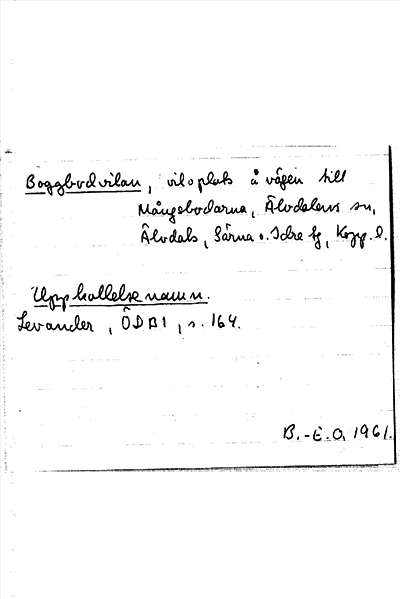 Boggbodvilan, viloplats å vägen till
Mångsbodarna, Älvdalens sn,
Älvdals, Särna o. Idre tg, Kopp. l.
Uppkallelsenamn.
Levander, ÖDB 1, s. 164.
B.-E. O. 1961.